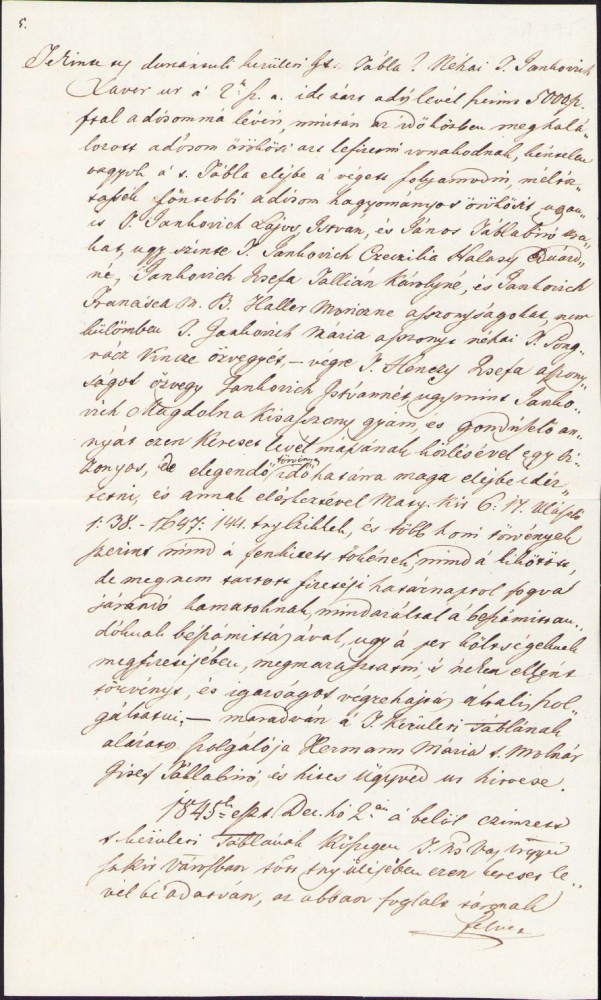 5.
Tekintetes dunántuli kerületi St. Tábla! Néhai T. Jankovich
Xaver ur á 2. sz. a. ide zárt adós levél szerint 5000 p.
fttal adósommá lévén, miután az időközben meghalá„
lozott adósom örökösei azt lefizetni vonakodnak, kéntelen
vagyok á t. Tábla elejbe á végett folyamodni, méltóz„
tassék föntebbi adósom hagyományos örökösit ugyan„
is T. Jankovich Lajos, Istvan, és János Táblabiró ura„
kat, ugy szinte T. Jankovich Czeczilia Halasy Eduárd„
né, Jankovich Josefa Tallián Károlyné, és Jankovich
Francisca M. B. Haller Moriczne aszszonyságokat, nem
külömben T. Jankovich Mária aszszonyt néhai T. Pong„
rácz Vincze özvegyét, – végre T. Hönczy Josefa aszszony„
ságot özvegy Jankovich Istvánnét, ugymint Janko„
vich Magdolna kisaszszony gyám, és gondviselő an„
nyát ezen kereset levél mássának közlésével egy bi„
zonyos, de elegendő törvényes időhatárra maga elejbe idéz„
tetni, és annak elérkeztével Maty. Kir. 6: 17. Ulászló
1: 38. – 1647: 144. tvnyczikkek, és több honi törvények
szerint mind á fenkitett tőkének, mind á kikötött,
de meg nem tartott fizetési határnaptol fogva
járandó kamatoknak, mindazáltal á beszámittan„
dóknak bészámittásával, ugy á per költségeknek
megfizetésében, megmarasztatni, 's nekem ellenek
törvényt, és igazságot végrehajtás általis szol„
gáltatni, – maradván á T. Kerületi Táblának
alázatos szolgálója Hermann Mária t. Molnár
Josef Táblabiró, és hites ügyvéd ur hitvese.
1845k eszt. Dec. hó 2án á belől czimzett
t. kerületi Táblának Kőszegen
városban tört. tvny ülésében ezen kereset le„
vel bé adatván, az abban foglalt